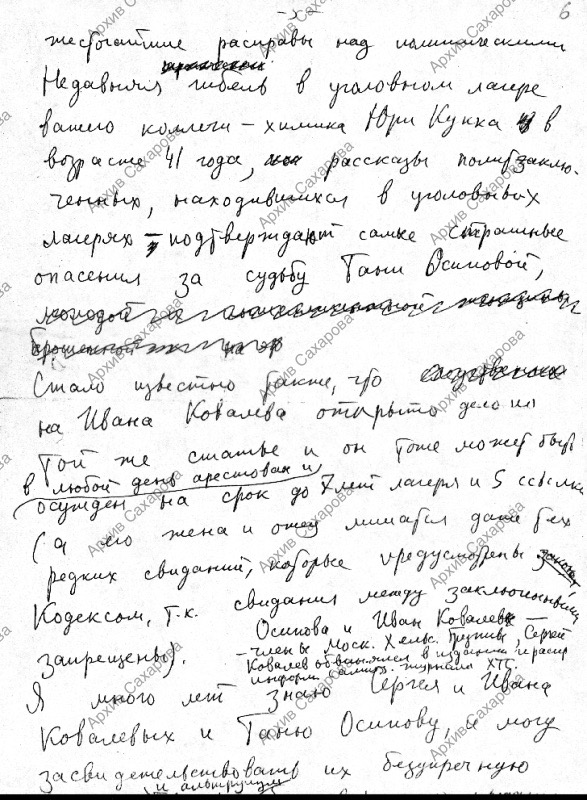 - 5 -
6
жесточайшие расправы над политическими
Недавняя гибель в уголовном лагере
вашего коллеги – химика Юри Кукка в
возрасте 41 года, рассказы политзаклю-
ченных, находившихся в уголовных
лагерях – подтверждают самые страшные
опасения за судьбу Тани Осиповой,
молодой и
брошенной на
Стало известно также, что
на Ивана Ковалева открыто дело по
той же статье и он тоже может быть
в любой день арестован и
осужден на срок до 7 лет лагеря и 5 ссылки
(а его жена и отец лишатся даже тех
редких свиданий, которые предусмотрены
Кодексом, т.к. свидания между заключенными
запрещены).
Осипова и Иван Ковалев
– члены Моск. Хельс. Группы, Сергей
Ковалев обвинялся в издании и распр
информ. самизд. журнала ХТС.
Я много лет знаю Сергея и Ивана
Ковалевых и Таню Осипову, и могу
засвидетельствовать их безупречную
и альтруизм
Архив Сахарова